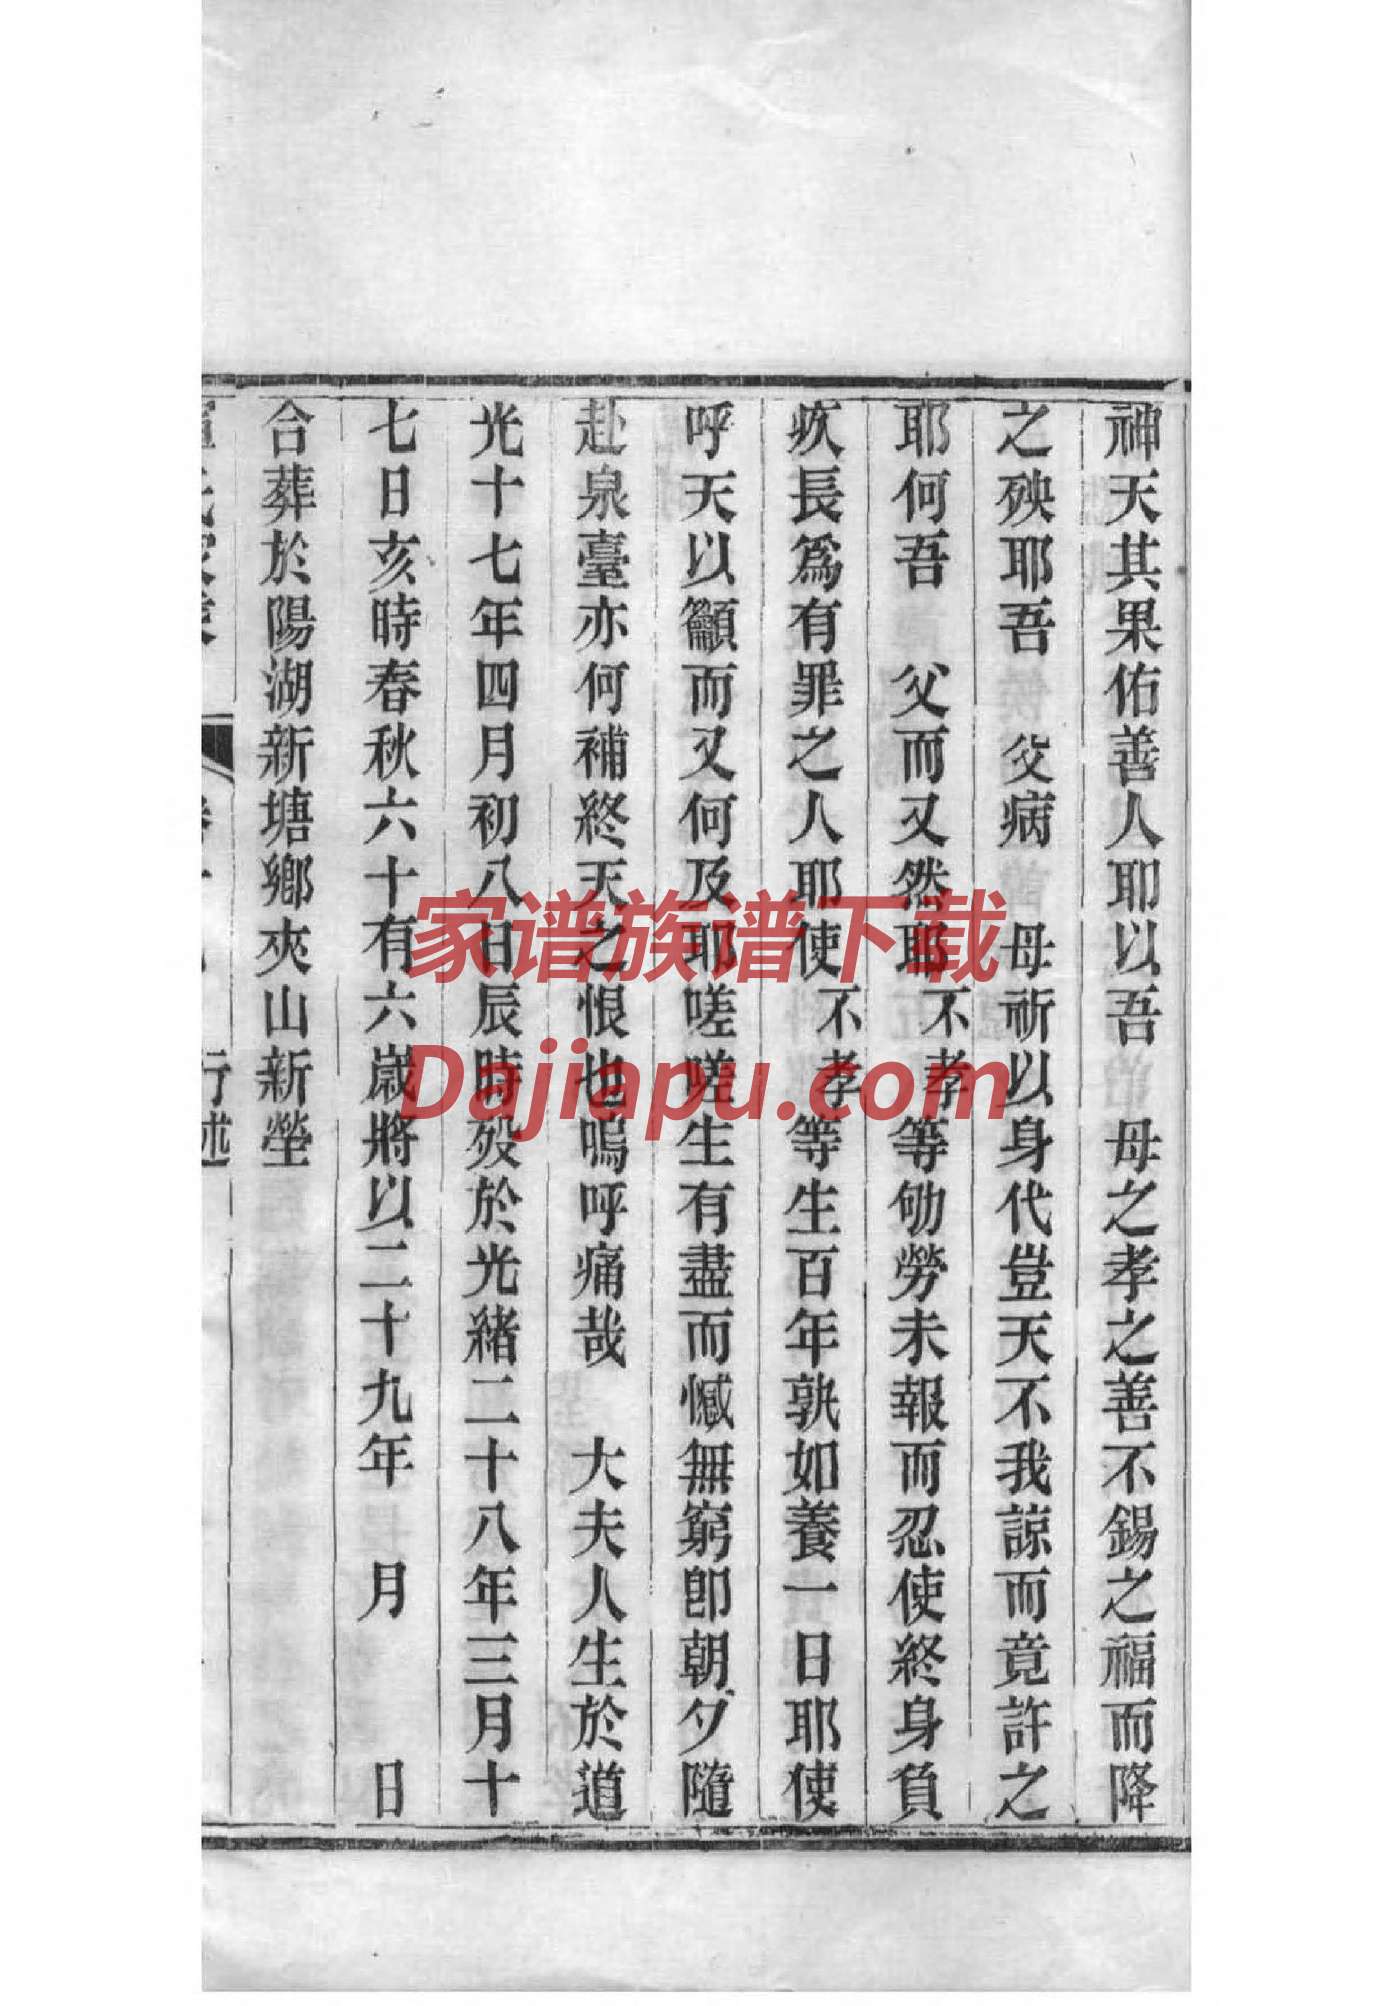 神天其果佑善人耶以吾　母之孝之善不錫之福而降
之殃耶吾　父病　母祈以身代豈天不我諒而竟許之
耶何吾　父而又然耶不孝等劬勞未報而忍使終身負
疚長為有罪之人耶使不孝等生百年孰如養一日耶使
呼天以籲而又何及耶嗟嗟生有盡而憾無窮卽朝夕隨
赴泉臺亦何補終天之恨也嗚呼痛哉　大夫人生於道
光十七年四月初八日辰時歿於光緒二十八年三月十
七日亥時春秋六十有六歲將以二十九年　月　日
合葬於陽湖新塘鄉夾山新塋
行述
家谱族谱下载
Dajiapu.com